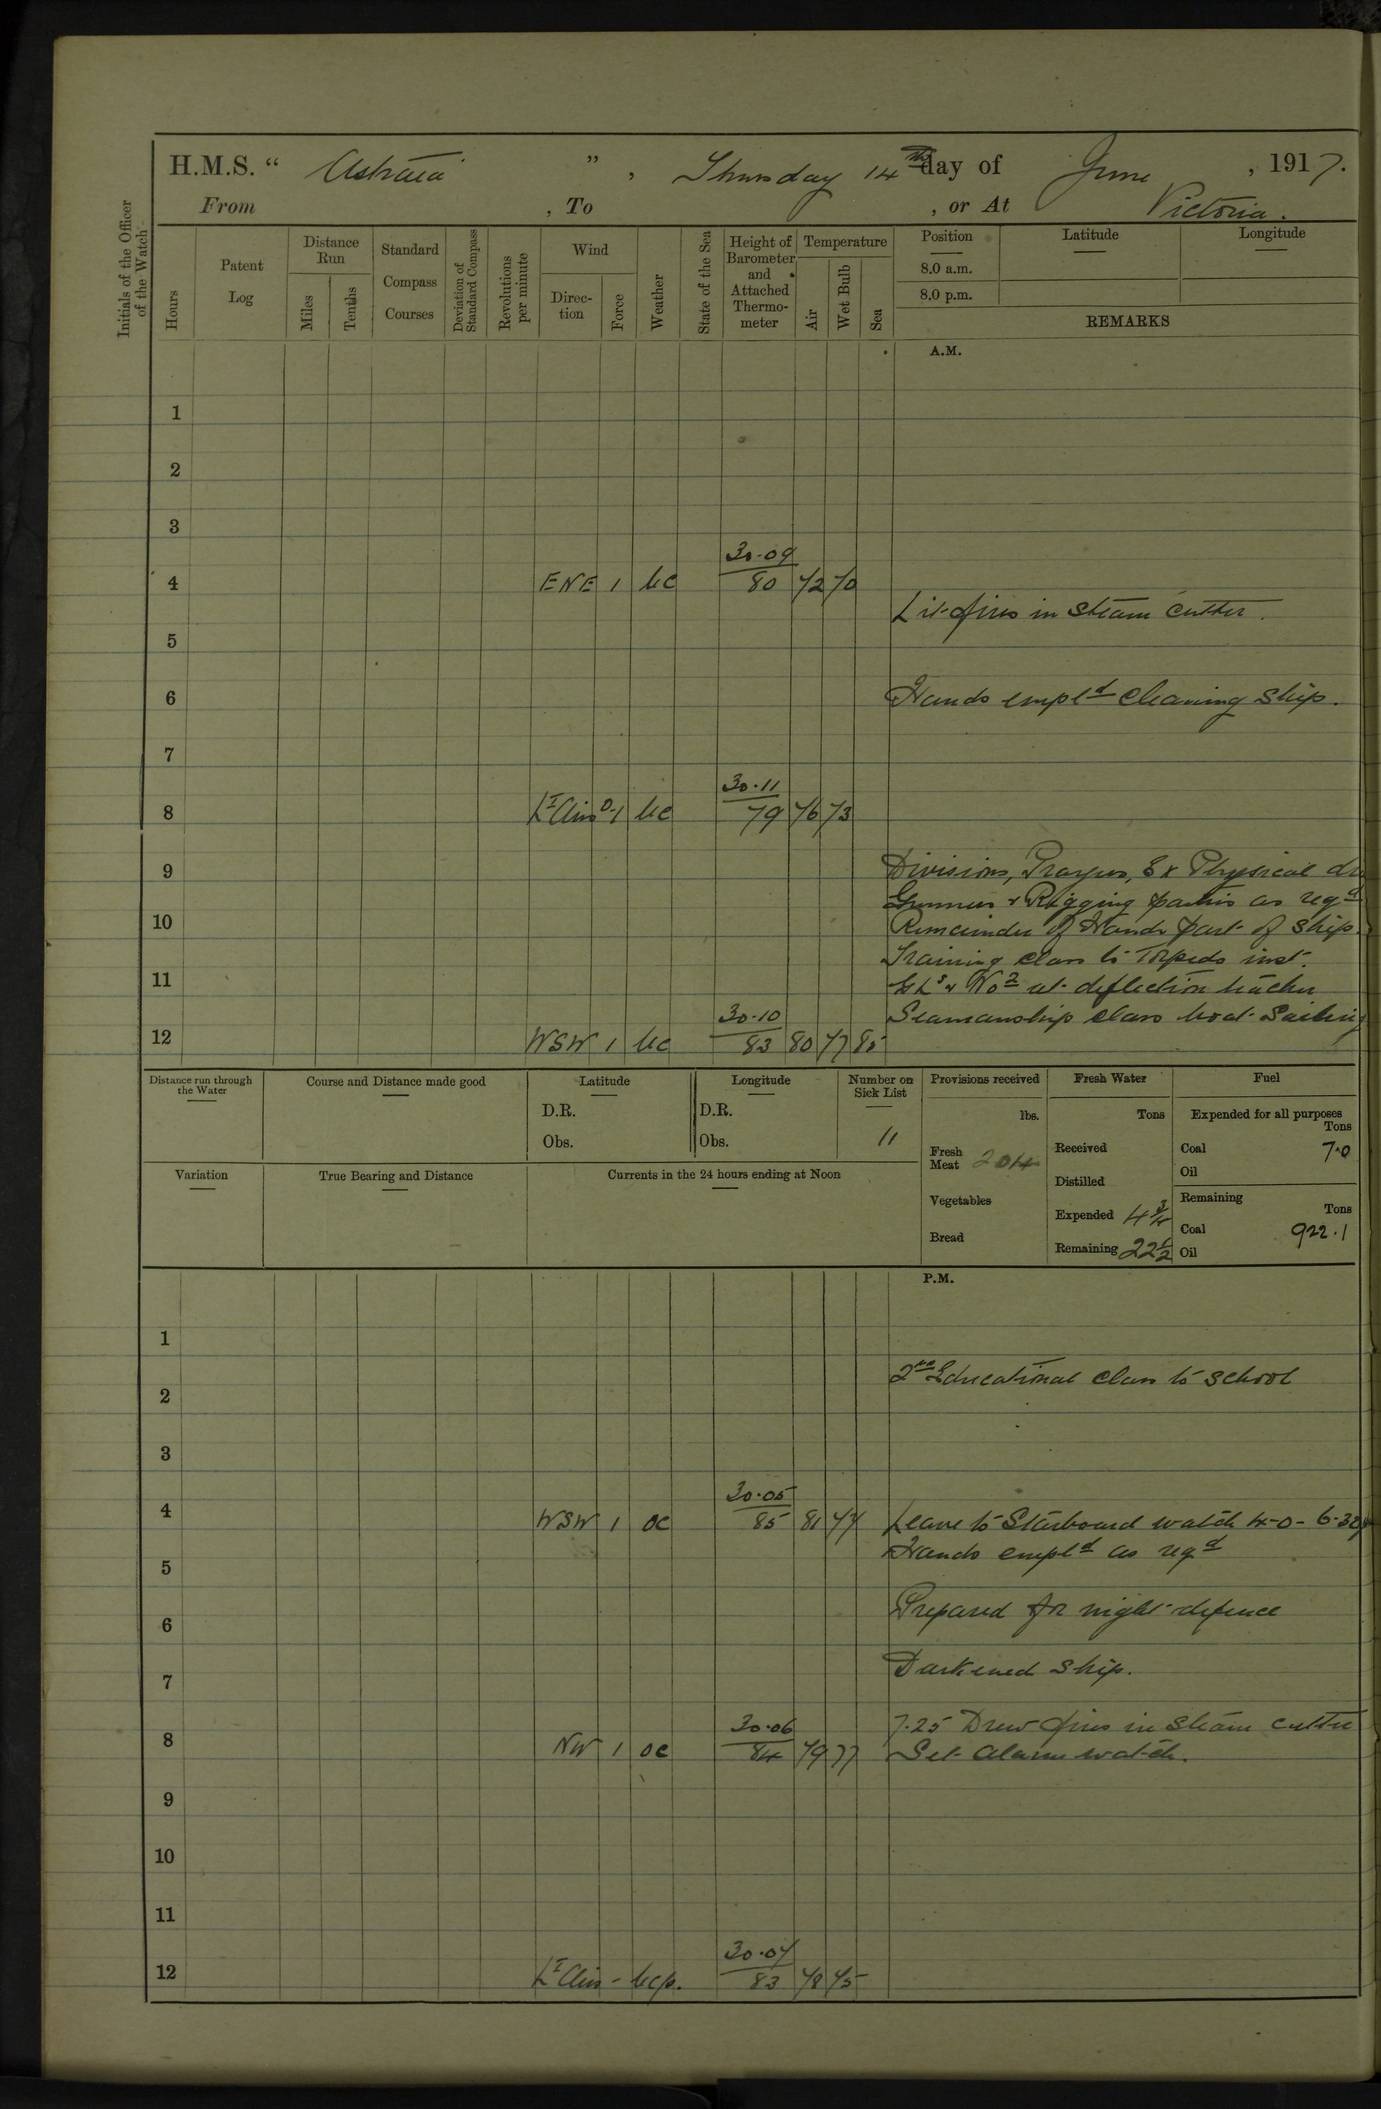 H.M.S. “ Astraea ” , Thursday 14th day of June , 1917.
From , To , or At Victoria.
Initials of the Officer of the Watch
Hours
Patent Log
Distance Run
Miles
Tenths
Standard Compass Courses
Deviation of Standard Compass
Revolutions per minute
Wind
Direc-tion
Force
Weather
State of the Sea
Height of Barometer and Attached Thermo-meter
Temperature
Air
Wet Bulb
Sea
Position
8.0 a.m.
8.0 p.m.
Latitude
Longitude
REMARKS
A.M.
1
2
3
30.09
4 ENE 1 bc 80 72 70
Lit fires in steam cutter.
5
6 Hands empld cleaning ship.
7
30.11
8 Lt Airs 0-1 bc 79 76 73
9 Divisions, Prayers, Ex Physical
Gunners & Rigging parties as reqd
10 Remainder of Hands part of ship.
Training class to Torpedo inst.
11 at deflection teacher
30.10 Seamanship class boat Sailing
12 WSW 1 bc 83 80 77 85
Distance run through the Water
Course and Distance made good
Latitude
D.R.
Obs.
Longitude
D.R.
Obs.
Number on Sick List
11
Provisions received
lbs.
Fresh Meat 204
Vegetables
Bread
Fresh Water
Tons
Received
Distilled
Expended 4¾
Remaining 22½
Fuel
Expended for all purposes
Tons
Coal 7.0
Oil
Remaining
Tons
Coal 922.1
Oil
Variation
True Bearing and Distance
Currents in the 24 hours ending at Noon
P.M.
1
2nd Educational class to school
2
3
30.05
4 WSW 1 oc 85 81 77 Leave to Starboard watch 4-0 - 6-30
Hands empld as reqd
5
6 Prepared for night defence
7 Darkened ship.
30.06 7.25 Drew fires in steam cutter
8 NW 1 oc 84 79 77 Set Alarm watch.
9
10
11
30.07
12 Lt Airs - bcp. 83 78 75